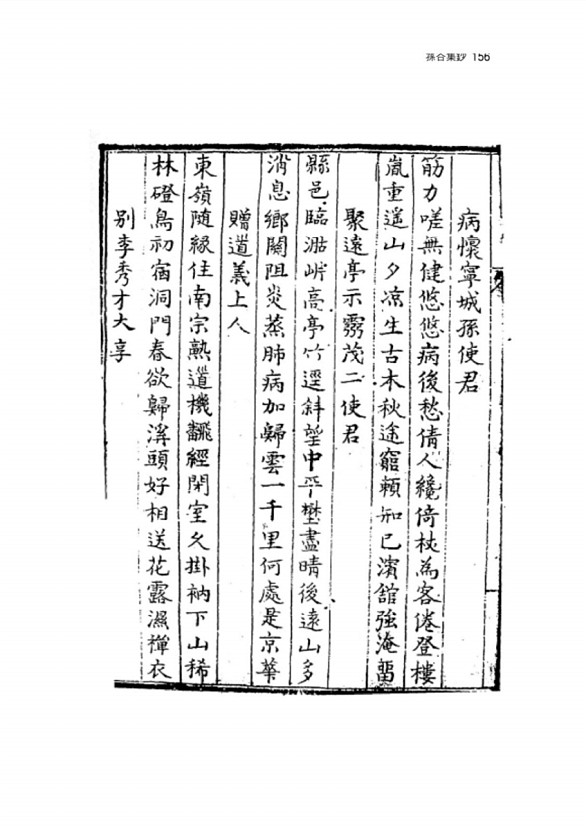 孫谷集鈔 156
病懷寧城孫使君
筋力嗟無健悠悠病後愁倩人纔倚杖為客倦登樓
嵐重遥山夕凉生古木秋途窮頼知已濱舘強淹留
聚遠亭示霧茂二使君
縣邑臨
高亭竹逕斜望中平
盡晴後遠山多
消息鄉關阻炎蒸肺病加歸雲一千里何處是京華
贈道義上人
東嶺隨緣住南宗熟道機飜經閑室久掛衲下山稀
林磴鳥初宿洞門春欲歸溪頭好相送花露濕禪衣
别李秀才大享